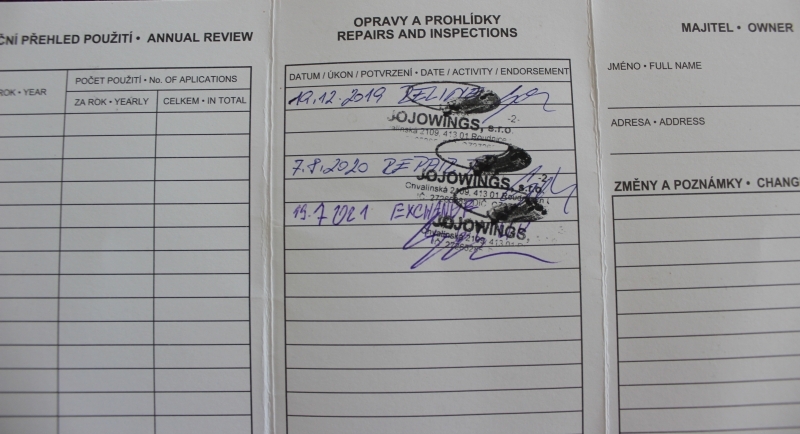 ČNÍ PŘEHLED POUŽITÍ • ANNUAL REVIEW
ROK • YEAR
POČET POUŽITÍ • No. OF APLICATIONS
ZA ROK • YEARLY
CELKEM • IN TOTAL
OPRAVY A PROHLÍDKY
REPAIRS AND INSPECTIONS
DATUM / ÚKON / POTVRZENÍ • DATE / ACTIVITY / ENDORSEMENT
19.12.2019
-2-
JOJOWINGS, s.r.o.
2109, 413 01 Roudnice
7.8.2020
-2-
JOJOWINGS, s.r.o.
Chvalínská 2109, 413 01 Roudnice
19.7.2021
JOJOWINGS,
Chvalínská 2109, 413 01
MAJITEL • OWNER
JMÉNO • FULL NAME
ADRESA • ADDRESS
ZMĚNY A POZNÁMKY • CHANG